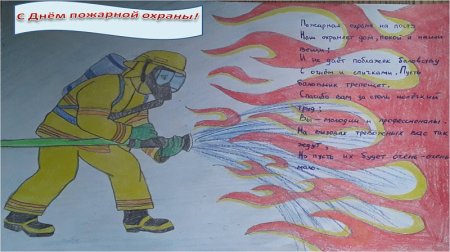 С Днём пожарной охраны!
Пожарная охрана на посту
Наш охраняет дом, покой и наши
вещи!
И не даёт поблажек баловству
С огнём и спичками. Пусть
баловник трепещет.
Спасибо вам за столь нелёгкий
труд!
Вы – молодцы и профессионалы.
На вызовах тревожных вас так
ждут,
Но пусть их будет очень-очень
мало.